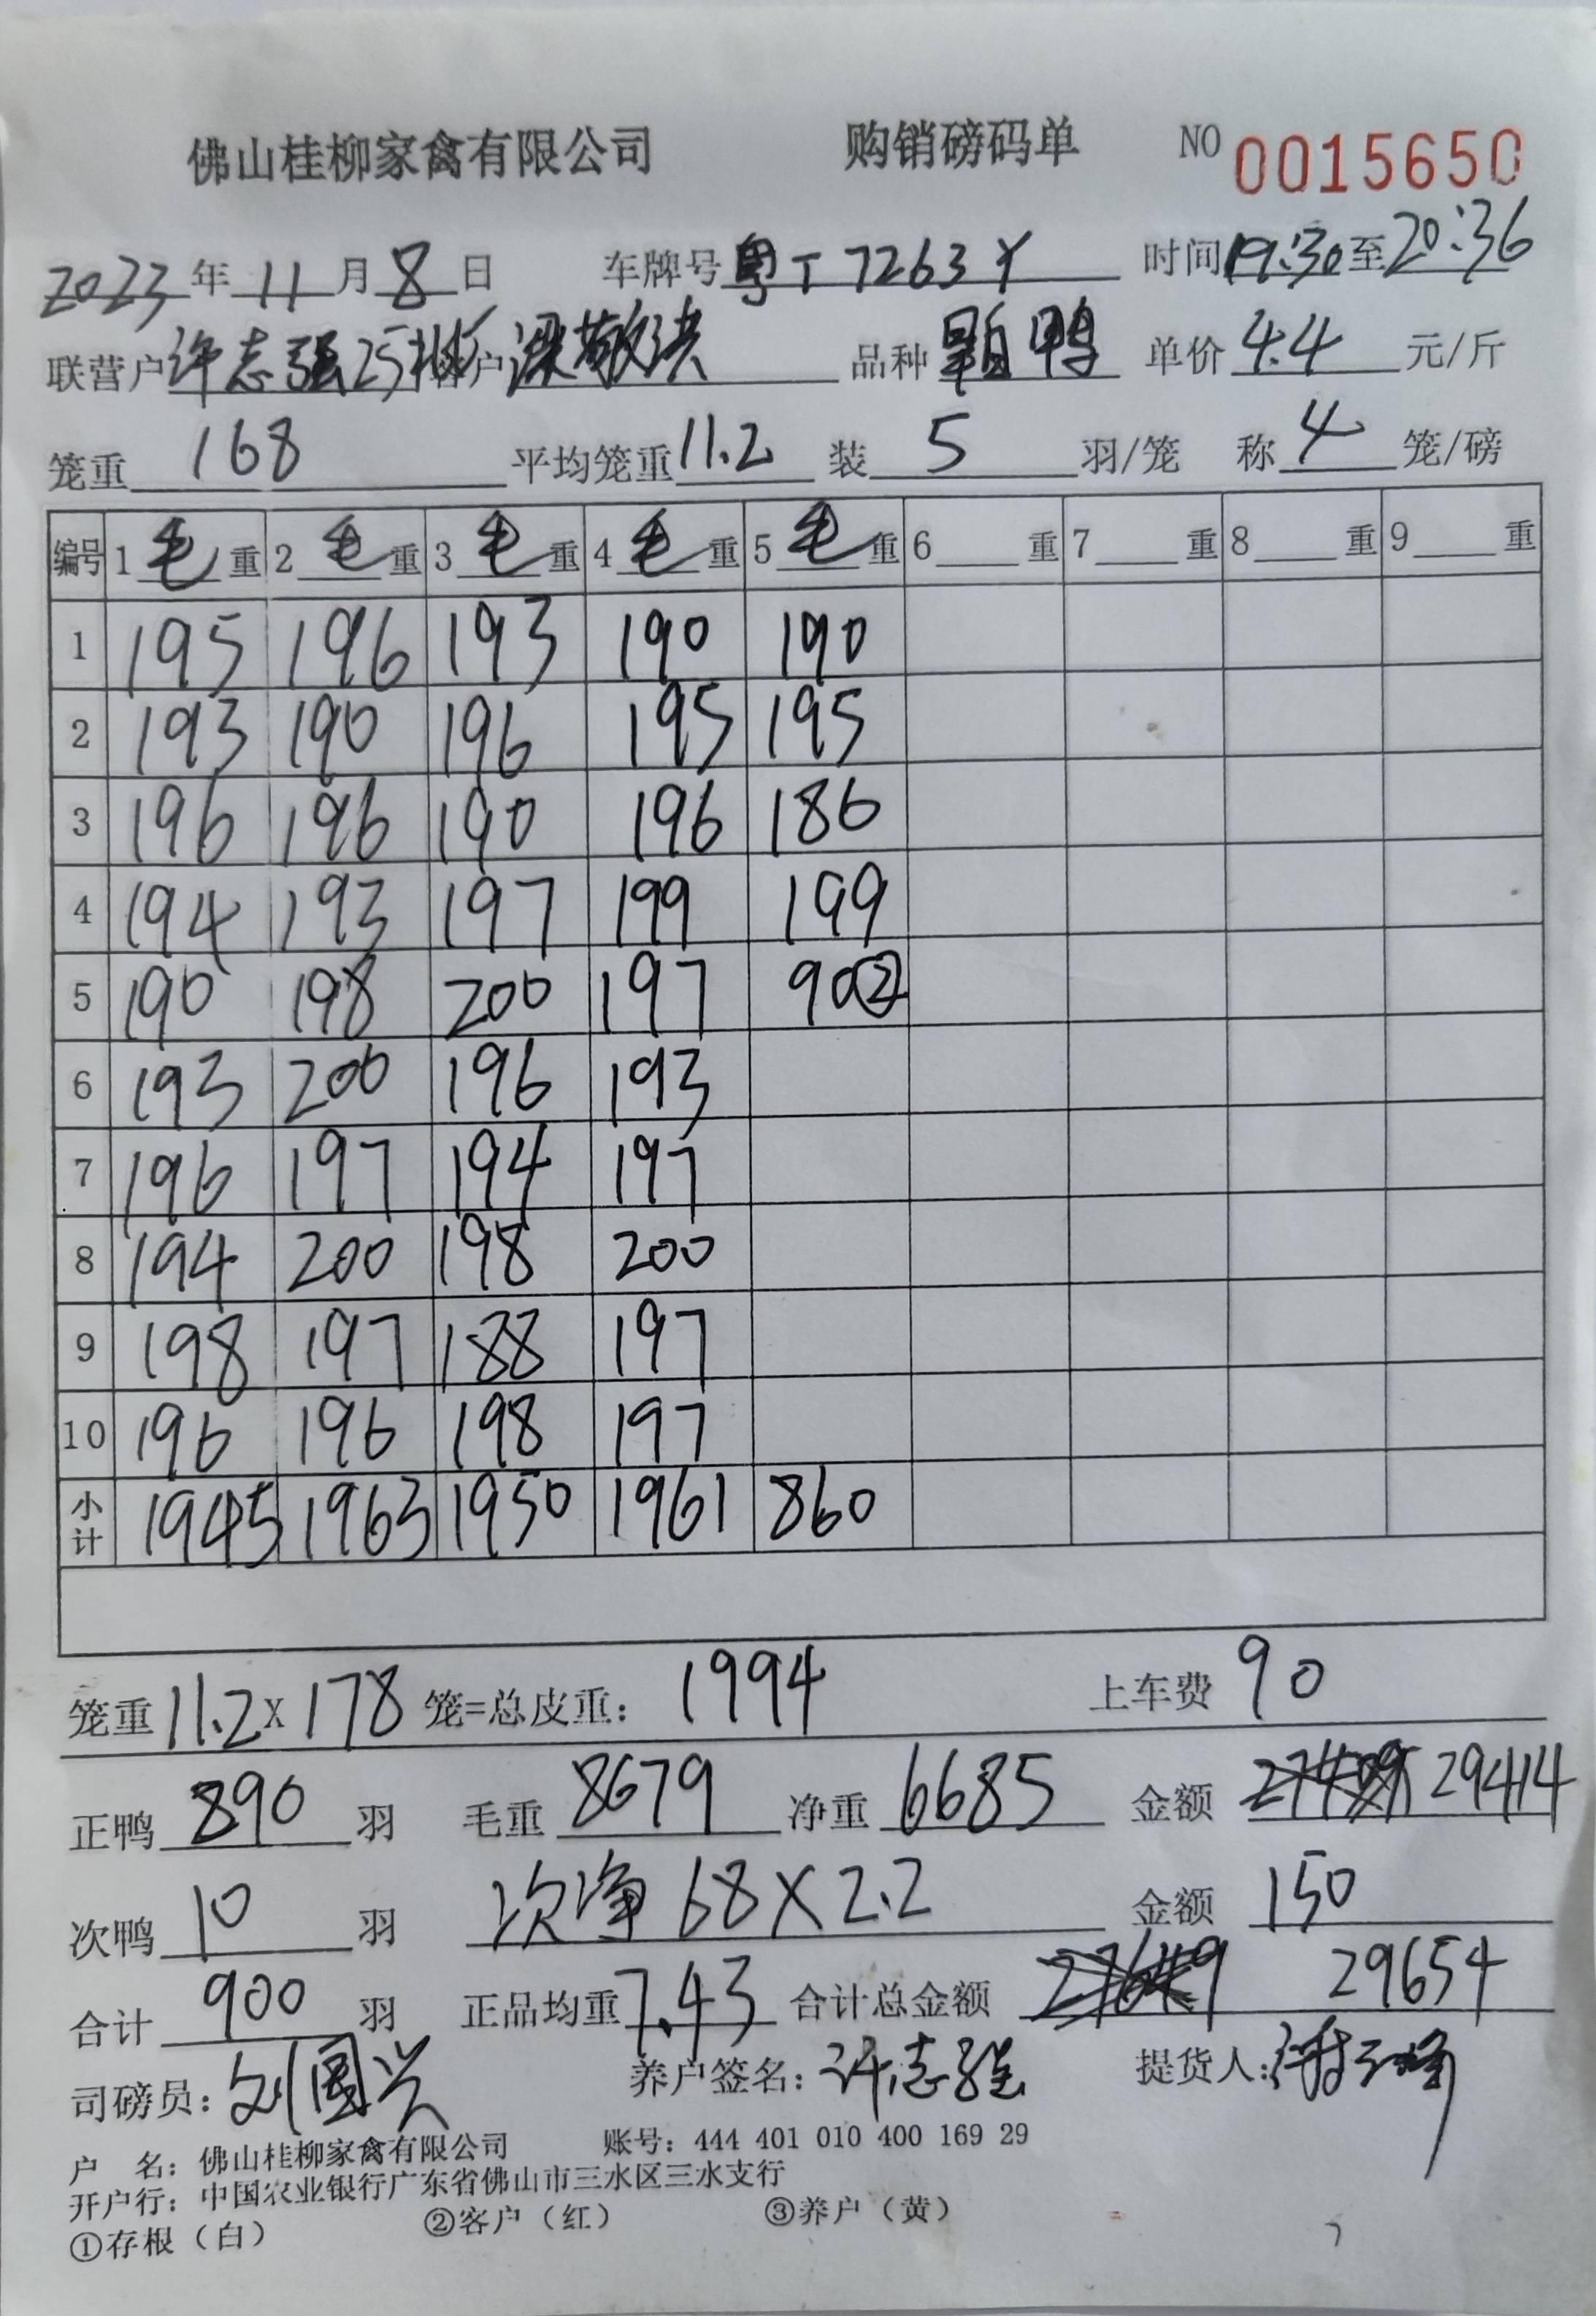 佛山桂柳家禽有限公司 购销磅码单 NO 0015650
2023年11月8日 车牌号粤T7263Y 时间19:30至20:36
联营户许志强25批客户梁敬洪 品种 鸭 单价4.4元/斤
笼重168 平均笼重11.2 装5羽/笼 称4笼/磅
编号 1毛重 2毛重 3毛重 4毛重 5毛重 6重 7重 8重 9重
1 195 196 193 190 190
2 193 190 196 195 195
3 196 196 190 196 186
4 194 193 197 199 199
5 190 198 200 197 90②
6 193 200 196 193
7 196 197 194 197
8 194 200 198 200
9 198 197 188 197
10 196 196 198 197
小计 1945 1963 1950 1961 860
笼重11.2X178笼=总皮重：1994 上车费90
正鸭890羽 毛重8679 净重6685 金额 29414
次鸭10羽 次净68X2.2 金额150
合计900羽 正品均重7.43 合计总金额 29654
司磅员：刘国兴 养户签名：许志强 提货人：
户 名：佛山桂柳家禽有限公司 账号：444 401 010 400 169 29
开户行：中国农业银行广东省佛山市三水区三水支行
①存根（白） ②客户（红） ③养户（黄）